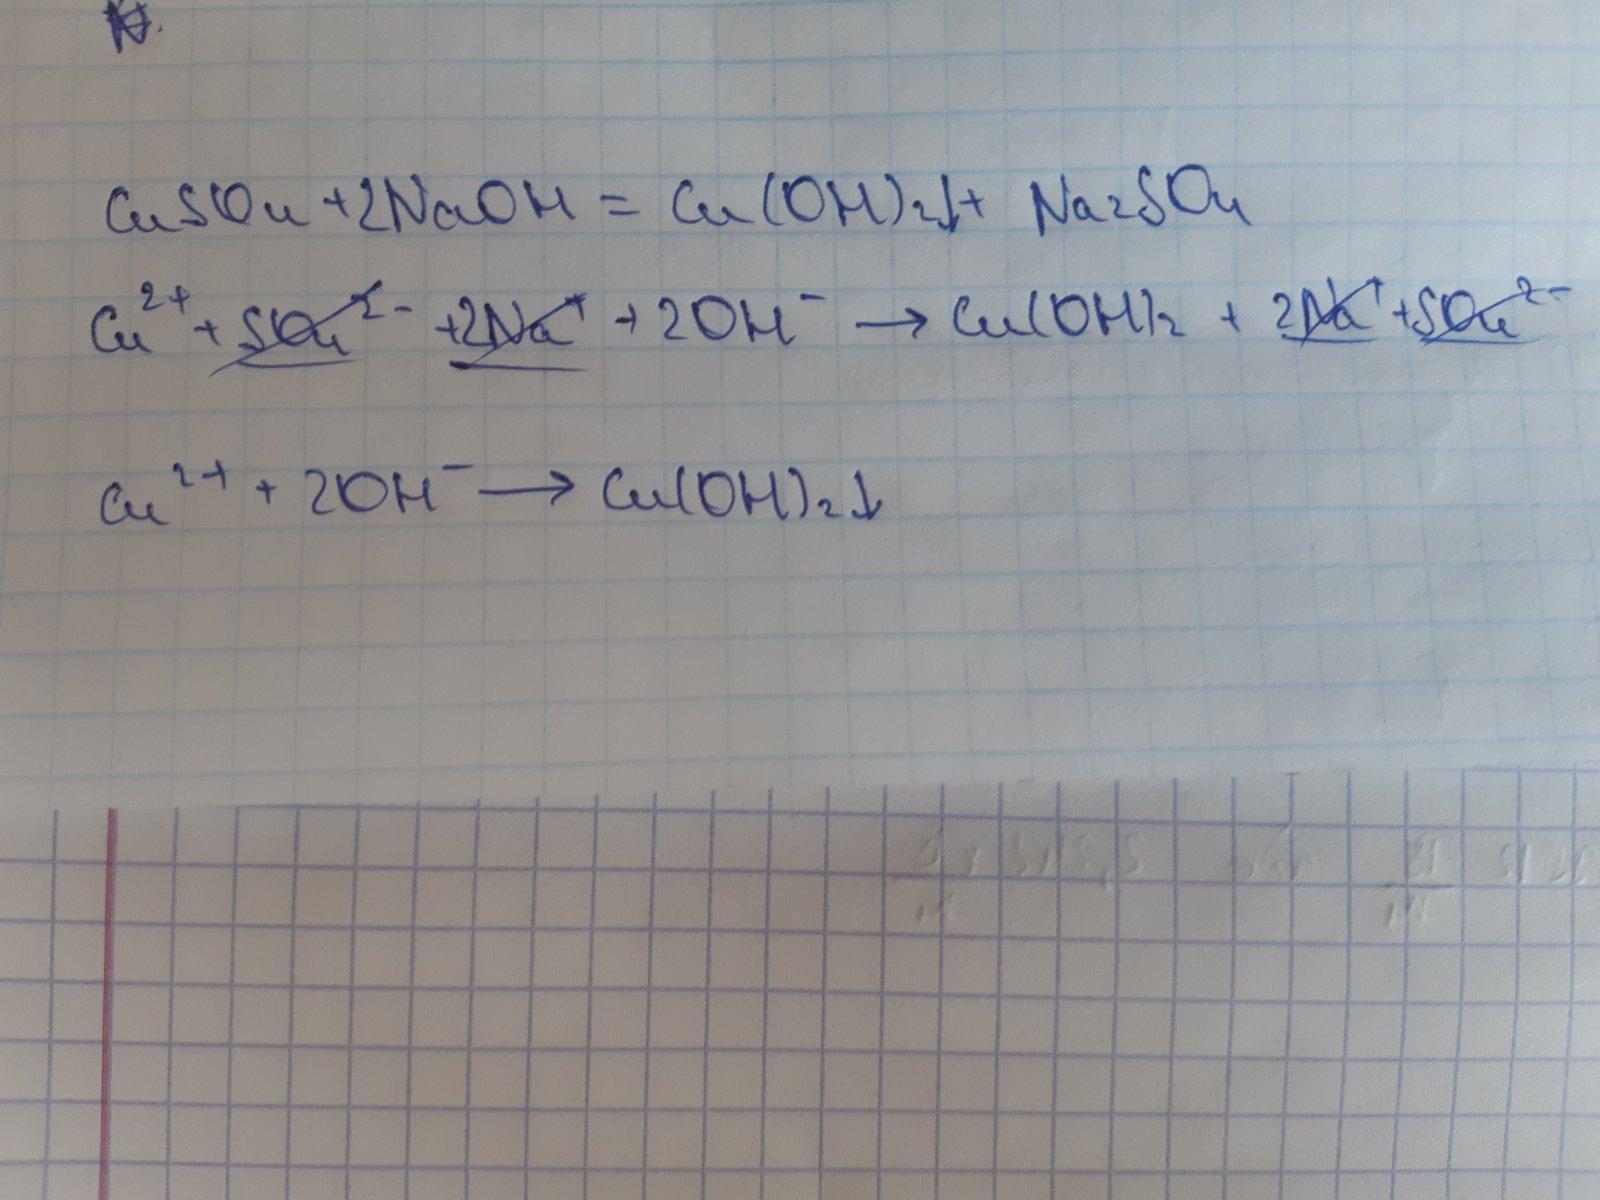 CuSO4 + 2NaOH = Cu(OH)2↓ + Na2SO4
Cu²⁺ + SO4²⁻ + 2Na⁺ + 2OH⁻ → Cu(OH)2 + 2Na⁺ + SO4²⁻
Cu²⁺ + 2OH⁻ → Cu(OH)2↓